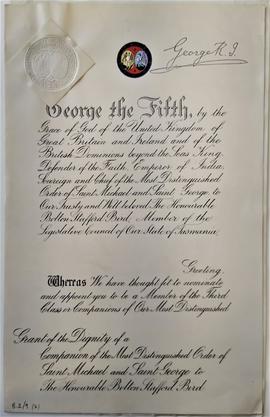 George R.I.
George the Fifth, by the
Grace of God of the United Kingdom of
Great Britain and Ireland and of the
British Dominions beyond the Seas King,
Defender of the Faith, Emperor of India,
Sovereign and Chief of the Most Distinguished
Order of Saint Michael and Saint George to
Our Trusty and Well beloved The Honourable
Bolton Stafford Bird, Member of the
Legislative Council of Our State of Tasmania
Greeting.
Whereas We have thought fit to nominate
and appoint you to be a Member of the Third
Class or Companions of Our Most Distinguished
Grant of the Dignity of a
Companion of the Most Distinguished Order of
Saint Michael and Saint George to
The Honourable Bolton Stafford Bird